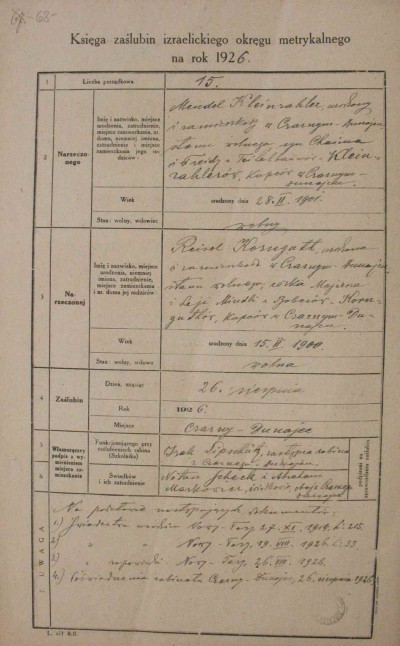 Księga zaślubin izraelickiego okręgu metrykalnego
na rok 1926.
1 Liczba porządkowa 15.
2 Narzeczo-
nego
Imię i nazwisko, miejsce
urodzenia, zatrudnienie,
miejsce zamieszkania, nr.
domu, niemniej imiona,
zatrudnienie i miejsce
zamieszkania jego ro-
dziców
Mendel Kleinzahler, urodzony
i zamieszkały w Czarnym-Dunajcu,
stanu wolnego, syn Chaima
i Freidy z Teitelbaumów Klein-
zahlerów, kupców w Czarnym-
Dunajcu
Wiek urodzony dnia 28. II. 1901.
Stan: wolny, wdowiec wolny
3 Na-
rzeczonej
Imię i nazwisko, miejsce
urodzenia, niemniej
imiona, zatrudnienie,
miejsce zamieszkania
i nr. domu jej rodziców
Reisel Korngutt, urodzona
i zamieszkała w Czarnym-Dunajcu
stanu wolnego, córka Majera
i Korn-
guttów, kupców w Czarnym-Du-
najcu.
Wiek urodzony dnia 15. II. 1900.
Stan: wolna, wdowa wolna
4 Zaślubin
Dzień, miesiąc 26. sierpnia
Rok 1926.
Miejsce Czarny-Dunajec
5 Własnoręczny
podpis z wy-
mienieniem
miejsca za-
mieszkania
Funkcjonującego przy
zaślubinach rabina
(Szkolnika)
Izak Lipschütz, zastępca rabina
z Czarnego-Dunajca
6 Świadków
i ich zatrudnienie
Natan Scheck i Abraham
Markowicz, świadkowie, obaj z Czarnego
Dunajca
UWAGA
Na podstawie następujących dokumentów:
1.) Świadectwa urodzin Nowy-Targ 27. XI. 1919. L: 215.
2.) " " Nowy-Targ, 19. VIII. 1926. L: 33.
3.) " zapowiedzi Nowy-Targ, 26. VIII. 1926.
4.) Poświadczenia rabinatu Czarny-Dunajec, 26. sierpnia 1926.